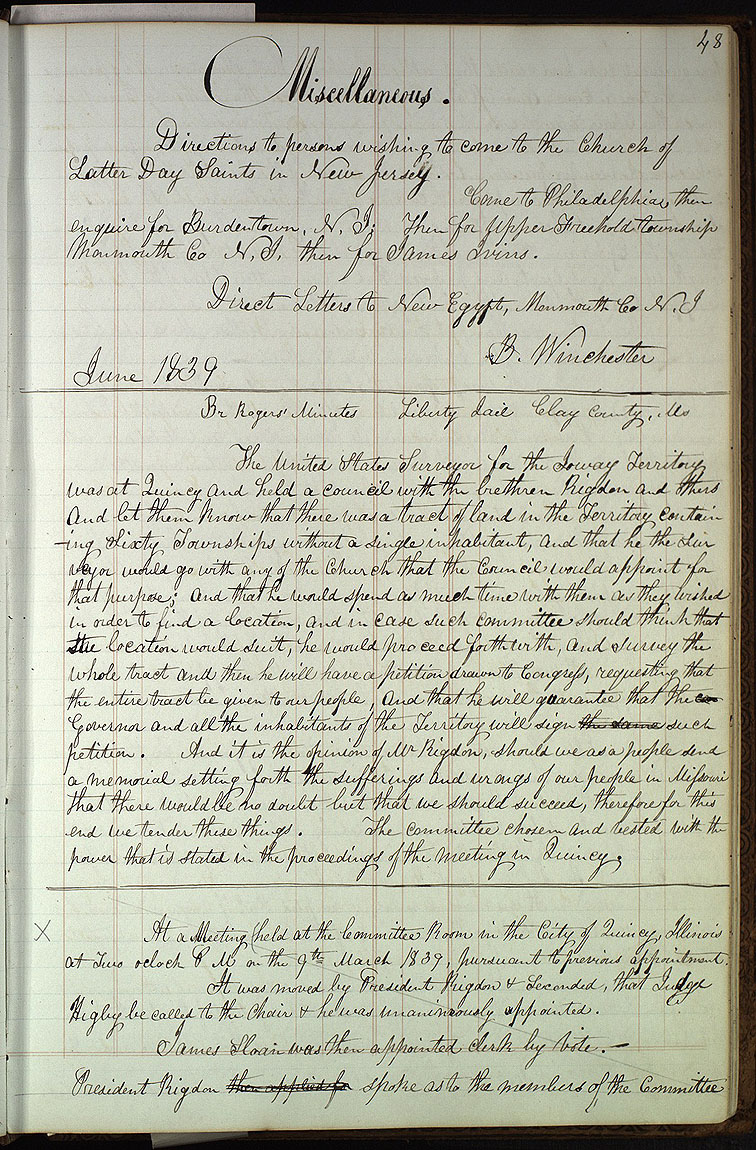 48
Miscellaneous.
Directions to persons wishing to come to the Church of
Latter Day Saints in New Jersey.
Come to Philadelphia, then
enquire for Burdentown, N. J; Then for Upper Freehold township
Monmouth Co N. J, then for James Ivins.
Direct Letters to New Egypt, Monmouth Co N. J
B. Winchester
June 1839
Br Rogers' Minutes Liberty Jail Clay County, Mo
The United States Surveyor for the Ioway Territory
was at Quincy and held a council with the brethren Rigdon and others
and let them know that there was a tract of land in the Territory contain
ing Sixty Townships without a single inhabitant, and that he the Sur
veyor would go with any of the Church that the Council would appoint for
that purpose; and that he would spend as much time with them as they wished
in order to find a location, and in case such committee should think that
the location would suit, he would proceed forthwith, and survey the
whole tract and then he will have a petition drawn to Congress, requesting that
the entire tract be given to our people, and that he will guarantee that the
Governor and all the inhabitants of the Territory will sign the same such
petition. And it is the opinion of Mr Rigdon, should we as a people send
a memorial setting forth the sufferings and wrongs of our people in Missouri
that there would be no doubt but that we should succeed, therefore for this
end we tender these things. The committee chosen and vested with the
power that is stated in the proceedings of the meeting in Quincy.
X At a Meeting held at the Committee Room in the City of Quincy, Illinois
at Two oclock P M on the 9th March 1839, pursuant to previous appointment.
It was moved by President Rigdon & Seconded, that Judge
Higby be called to the Chair & he was unanimously appointed.
James Sloan was then appointed clerk by Vote.—
President Rigdon then applied fo spoke as to the members of the Committee